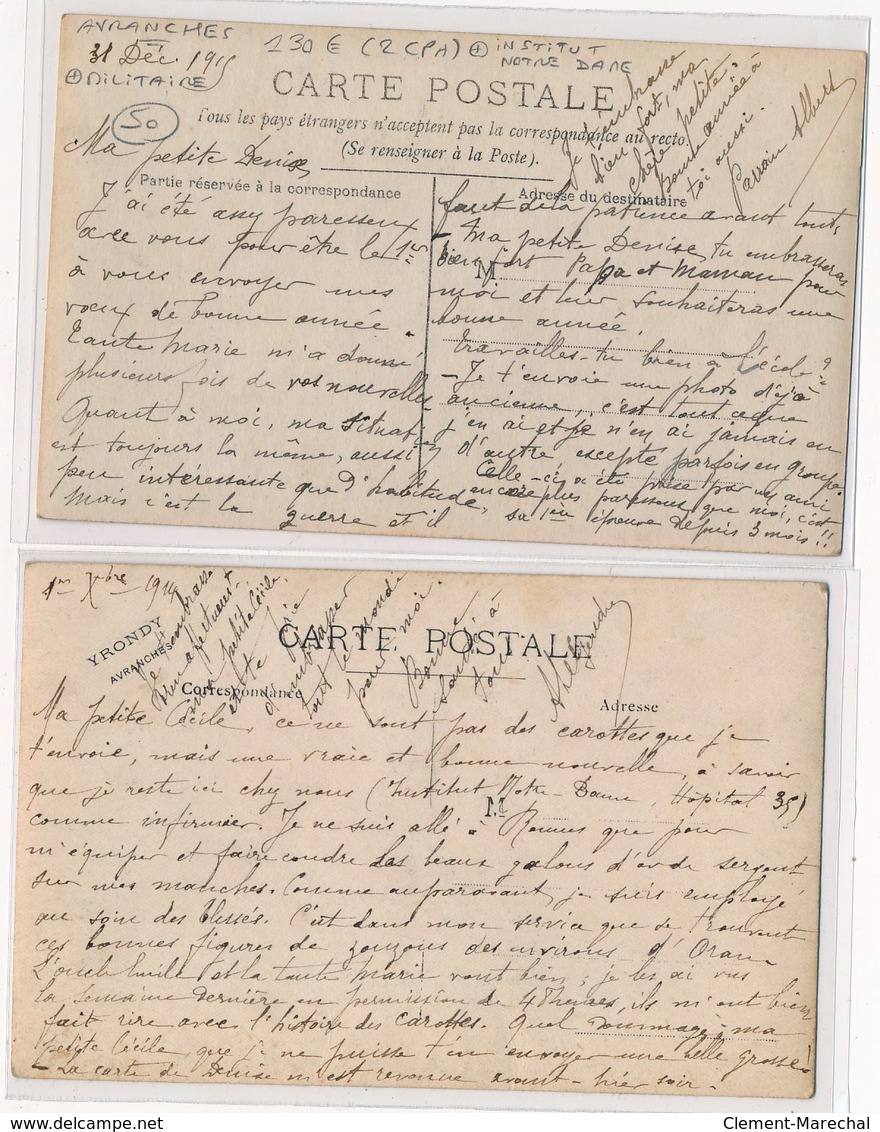 AVRANCHES
31 Déc. 1915
130 € (2 CPA) + INSTITUT
NOTRE DAME
+ MILITAIRE
50
CARTE POSTALE
Tous les pays étrangers n'acceptent pas la correspondance au recto.
(Se renseigner à la Poste).
Partie réservée à la correspondance
Adresse du destinataire
M
Ma petite Denise,
J'ai été assez paresseux
avec vous pour être le 1er
à vous envoyer mes
vœux de bonne année.
Tante Marie m'a donné
plusieurs fois de vos nouvelles.
Quant à moi, ma situation
est toujours la même, aussi
peu intéressante que d'habitude,
mais c'est la guerre et il
faut de la patience avant tout.
- Ma petite Denise, tu embrasseras
bien fort Papa et Maman pour
moi et leur souhaiteras une
bonne année.
Travailles-tu bien à l'école ?
- Je t'envoie une photo déjà
ancienne, c'est tout ce que
j'en ai et je n'en ai jamais eu
d'autre excepté parfois en groupe.
Celle-ci a été prise par un ami
encore plus paresseux que moi, c'est
sa 1ère épreuve depuis 3 mois !!
Je t'embrasse
bien fort, ma
chère petite.
bonne année à
toi aussi.
Parrain Albert
1er Xbre 1914
YRONDY
AVRANCHES
CARTE POSTALE
Correspondance
Adresse
M
Ma petite Cécile, ce ne sont pas des carottes que je
t'envoie, mais une vraie et bonne nouvelle, à savoir
que je reste ici chez nous (Institut Notre-Dame, Hôpital 35)
comme infirmier. Je ne suis allé à Rennes que pour
m'équiper et faire coudre les beaux galons d'or de sergent
sur mes manches. Comme auparavant, je suis employé
au soin des blessés. C'est dans mon service que se trouvent
ces bonnes figures de zouzous des environs d'Oran.
L'oncle Emile et la tante Marie vont bien ; je les ai vus
la semaine dernière en permission de 48 heures, ils m'ont bien
fait rire avec l'histoire des carottes. Quel dommage, ma
petite Cécile, que je ne puisse t'en envoyer une belle grosse !
- La carte de Denise m'est revenue avant-hier soir -
Je t'embrasse
bien affectueust
ma petite Cécile.
et te prie
d'embrasser
tout le monde
pour moi.
Bonne
santé à
tous.
Clement-Marechal